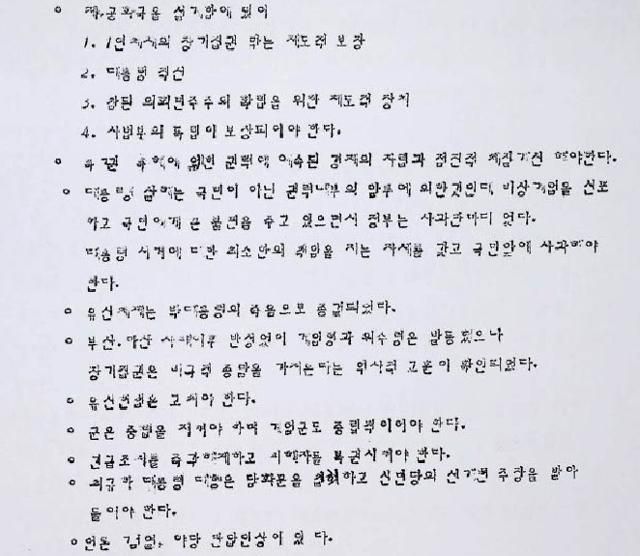 ◦ 제4공화국을 설계함에 있어
1. 1인체제의 장기집권 막는 제도적 보장
2. 대통령 직선
3. 의회민주주의 확립을 위한 제도적 장치
4. 사법부의 독립이 보장되어야 한다.
◦ 특권 특혜에 의한 권력에 예속된 경제의 자립과 점진적 체질개선 해야한다.
◦ 대통령 살해는 국민이 아닌 권력내부의 암투에 의한것인데 비상계엄을 선포
하고 국민에게 큰 불편을 주고 있으면서 정부는 사과한마디 없다.
대통령 시해에 대한 최소한의 책임을 지는 자세를 갖고 국민앞에 사과해야
한다.
◦ 유신체제는 박대통령의 죽음으로 종결되었다.
◦ 부산.마산 사태이후 반성없이 계엄령과 위수령은 발동했으나
장기집권은 비극적 종말을 가져온다는 역사적 교훈이 확인되었다.
◦ 유신헌법은 고쳐야 한다.
◦ 군은 중립을 지켜야 하며 계엄군도 중립적이어야 한다.
◦ 긴급조치를 즉각해제하고 피해자를 복권시켜야 한다.
◦ 최규하 대통령 대행은 담화문을 철회하고 신민당의 선개헌 주장을 받아
들여야 한다.
◦ 언론 검열, 야당 탄압인상이 있 다.